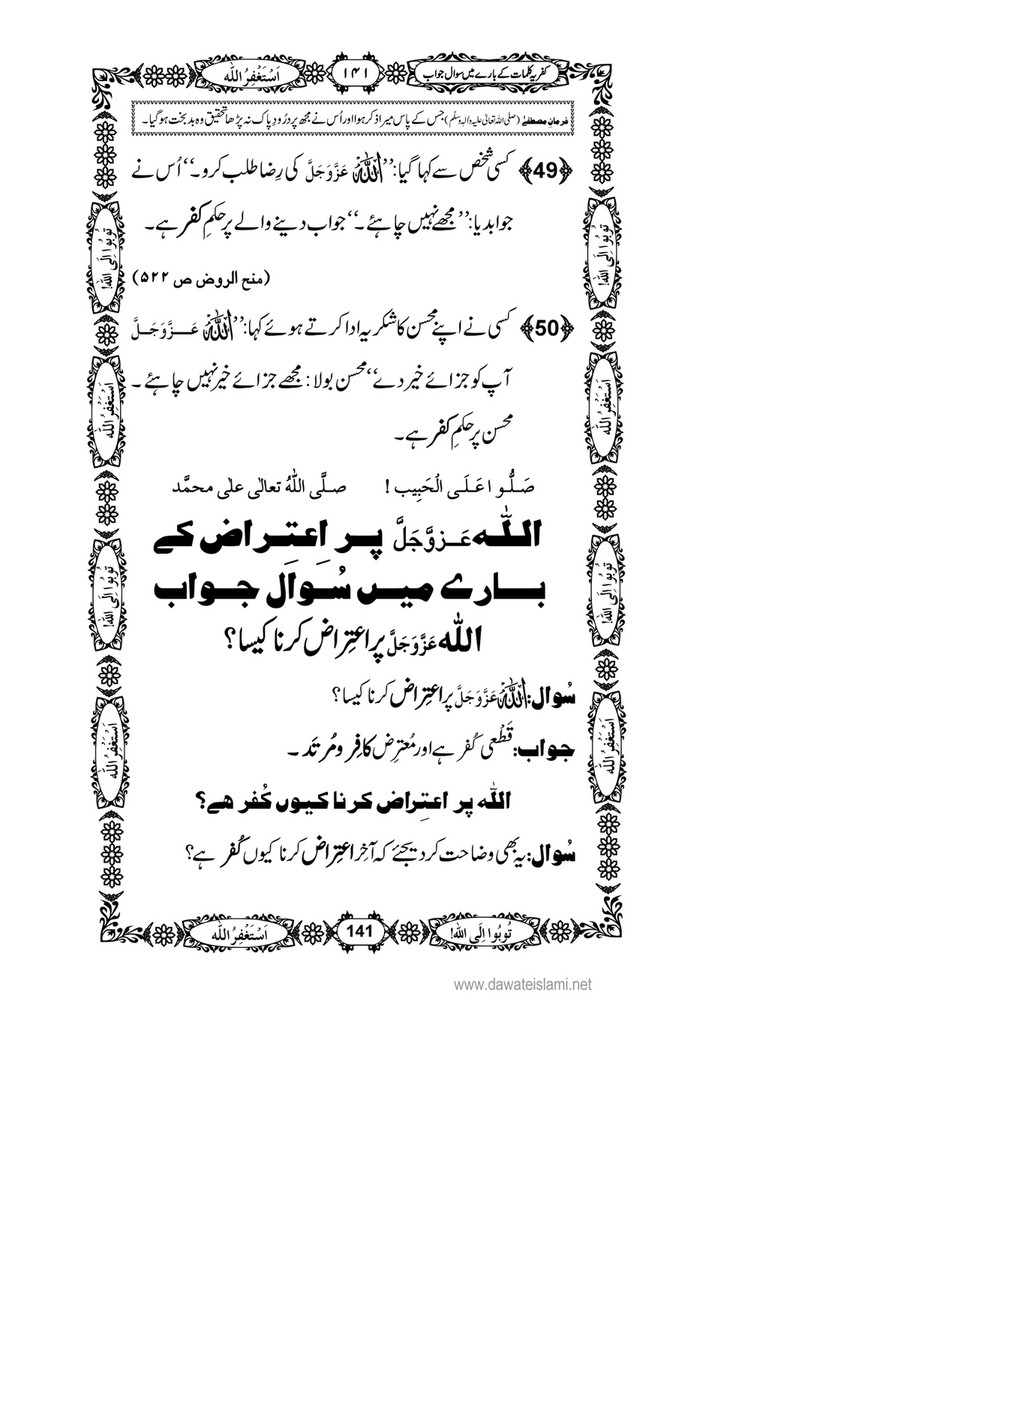 کفریہ کلمات کے بارے میں سوال جواب
۱۴۱
اَسْتَغْفِرُ اللّٰہ
فرمانِ مصطفٰے (صلی اللہ تعالیٰ علیہ والہ وسلم) جس کے پاس میرا ذکر ہوا اور اُس نے مجھ پر دُرُودِ پاک نہ پڑھا تحقیق وہ بد بخت ہو گیا۔
﴿49﴾ کسی شخص سے کہا گیا: ’’اللّٰہ عَزَّوَجَلَّ کی رِضا طلب کرو۔‘‘ اُس نے
جواب دیا: ’’مجھے نہیں چاہئے۔‘‘ جواب دینے والے پر حکمِ کفر ہے۔
(منح الروض ص ۵۲۲)
﴿50﴾ کسی نے اپنے محسن کا شکریہ ادا کرتے ہوئے کہا: ’’اللّٰہ عَزَّوَجَلَّ
آپ کو جزائے خیر دے‘‘ محسن بولا: مجھے جزائے خیر نہیں چاہئے۔
محسن پر حکمِ کفر ہے۔
صَلُّو ا عَلَی الْحَبِیب ! صلَّی اللّٰہُ تعالٰی علٰی محمَّد
اللّٰہ عَزوَّجَلَّ پر اِعتِراض کے
بارے میں سُوال جواب
اللّٰہ عَزَّوَجَلَّ پر اعتِراض کرنا کیسا؟
سُوال: اللّٰہ عَزَّوَجَلَّ پر اعتِراض کرنا کیسا؟
جواب: قَطْعی کُفر ہے اور مُعترِض کافِر و مُرتَد۔
اللّٰہ پر اعتِراض کرنا کیوں کُفر ھے؟
سُوال: یہ بھی وضاحت کر دیجئے کہ آخِر اعتِراض کرنا کیوں کُفر ہے؟
تُوبُوا اِلَی اللّٰہ!
اَسْتَغْفِرُ اللّٰہ
تُوبُوا اِلَی اللّٰہ!
اَسْتَغْفِرُ اللّٰہ
تُوبُوا اِلَی اللّٰہ!
اَسْتَغْفِرُ اللّٰہ
تُوبُوا اِلَی اللّٰہ!
اَسْتَغْفِرُ اللّٰہ
تُوبُوا اِلَی اللّٰہ!
141
اَسْتَغْفِرُ اللّٰہ
www.dawateislami.net